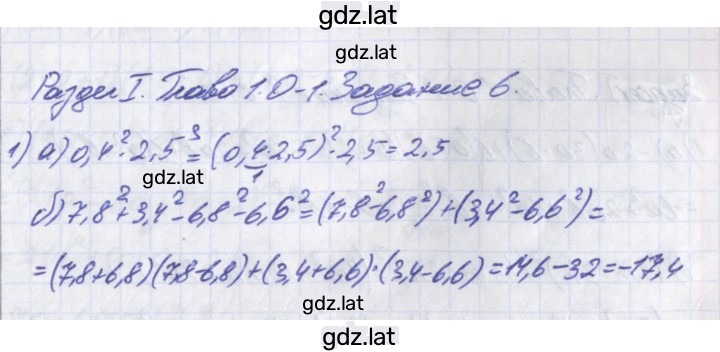 gdz.lat
gdz.lat
Раздел I. Глава 1. О-1. Задание 6.
1) а) 0,4²·2,5³ = (0,4·2,5)²·2,5 = 2,5
1
gdz.lat
б) 7,8² + 3,4² - 6,8² - 6,6² = (7,8² - 6,8²) + (3,4² - 6,6²) =
= (7,8+6,8)(7,8-6,8) + (3,4+6,6)·(3,4-6,6) = 14,6 - 32 = -17,4
gdz.lat
gdz.lat